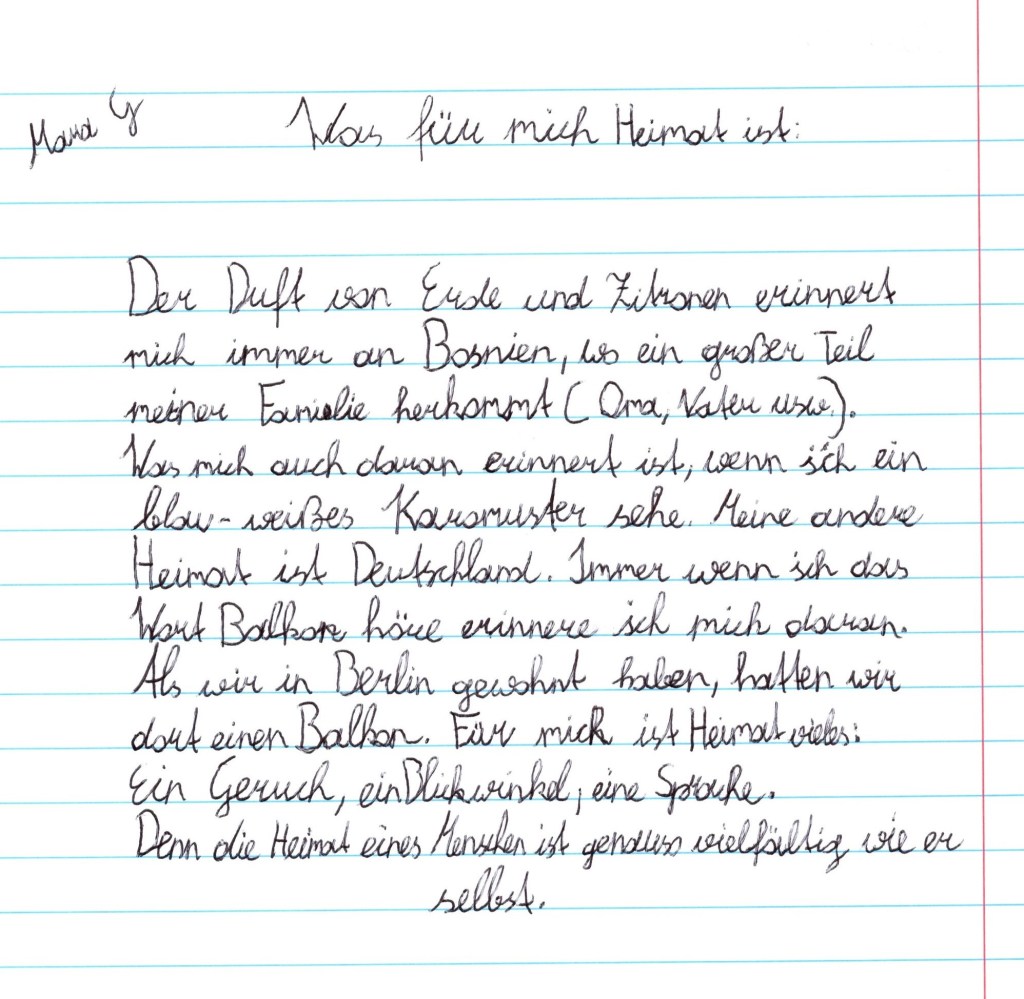 Mara G
Was für mich Heimat ist:
Der Duft von Erde und Zitronen erinnert
mich immer an Bosnien, wo ein großer Teil
meiner Familie herkommt (Oma, Vater usw.).
Was mich auch daran erinnert ist, wenn ich ein
blau-weißes Karomuster sehe. Meine andere
Heimat ist Deutschland. Immer wenn ich das
Wort Balkon höre erinnere ich mich daran.
Als wir in Berlin gewohnt haben, hatten wir
dort einen Balkon. Für mich ist Heimat vieles:
Ein Geruch, ein Blickwinkel, eine Sprache.
Denn die Heimat eines Menschen ist genauso vielfältig wie er
selbst.